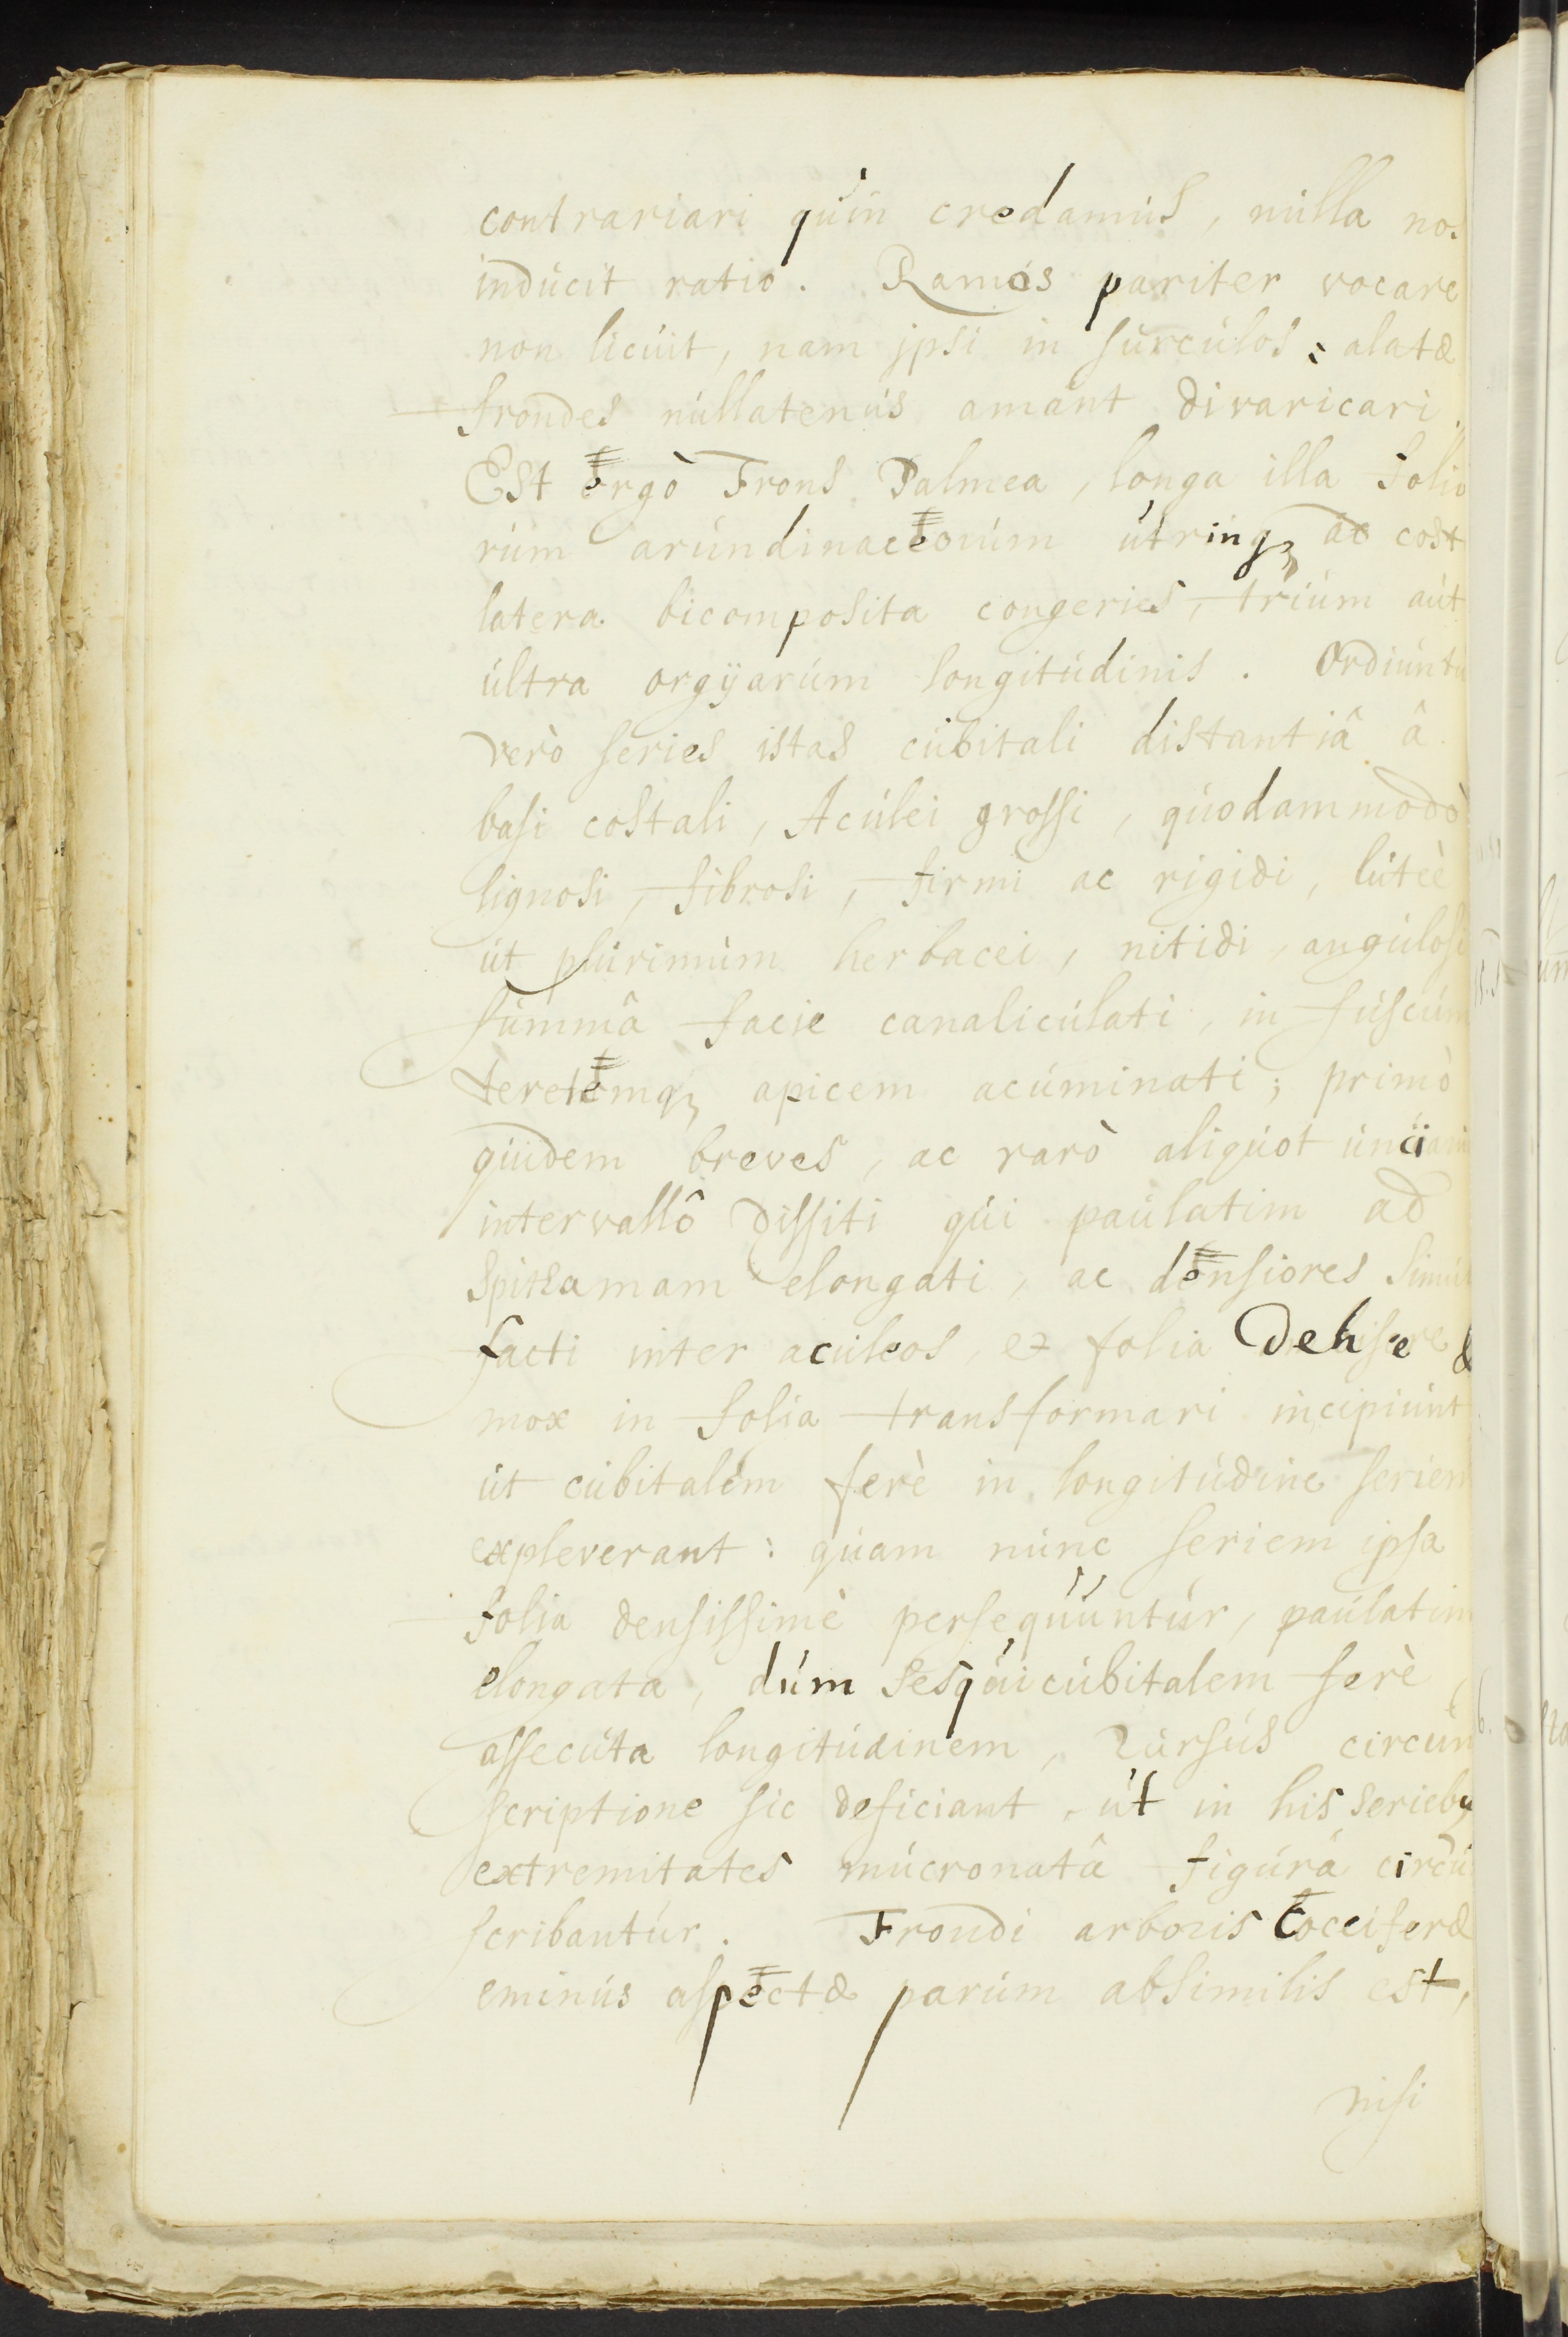 contrariari quin credamus, nulla nos
inducit ratio. Ramos pariter vocare
non licuit, nam jpsi in surculos; alatæ
frondes nullatenus amant divaricari.
Est ergò Frons Palmea, longa illa folio
rum arundinaceorum utrinq; ac cost
latera bicomposita congeries, trium aut
ultra orgÿarum longitudinis. Ordiuntu
verò series istas cubitali distantiâ â
basi costali, Aculei grossi, quodammodò
lignosi, fibrosi, firmi ac rigidi, luteè
ut plurimùm herbacei, nitidi, angulosi
summâ facie canaliculati, in fuscum
teretemq; apicem acuminati; primò
quidem breves, ac rarò aliquot
intervallô dissiti qui paulatim ad
Spithamam elongati, ac densiores Simul
facti inter aculeos, et folia &
mox in folia transformari incipiunt
ut cubitalem ferè in longitudine seriem
expleverant: quam nunc seriem ipsa
folia densissimè persequuntur, paulatim
elongata, dum Sesquicubitalem ferè
assecuta longitudinem, rursus circum
scriptione sic deficiant, ut in his seriebu
extremitates mucronatâ figurâ circu
scribantur. Frondi arboris Cocciferæ
eminus aspectæ parum absimilis est,
nisi